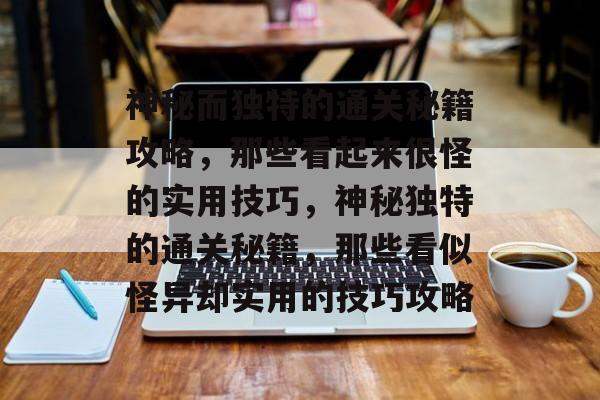 神秘而独特的通关秘籍
攻略，那些看起来很怪
的实用技巧，神秘独特
的通关秘籍，那些看似
怪异却实用的技巧攻略